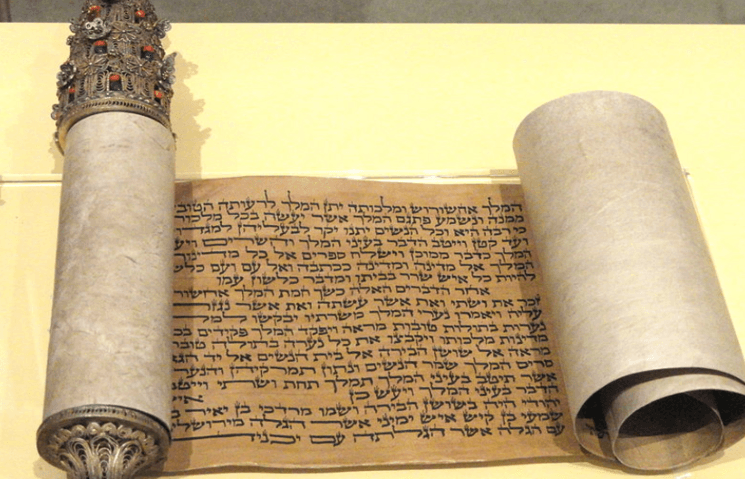 המלך אחשורוש ומלכותה יתן המלך לרעותה הטוב
ממנה ונשמע פתגם המלך אשר יעשה בכל מלכות
כי רבה היא וכל הנשים יתנו יקר לבעליהן למגד
ועד קטן וייטב הדבר בעיני המלך והשרים ויע
המלך כדבר ממוכן וישלח ספרים אל כל מדינות
המלך אל מדינה ומדינה ככתבה ואל עם ועם כלש
להיות כל איש שרר בביתו ומדבר כלשון עמו
אחר הדברים האלה כשך חמת המלך אחשור
זכר את ושתי ואת אשר עשתה ואת אשר נגזר
עליה ויאמרו נערי המלך משרתיו יבקשו למלך
נערות בתולות טובות מראה ויפקד המלך פקידים בכ
מדינות מלכותו ויקבצו את כל נערה בתולה טובת
מראה אל שושן הבירה אל בית הנשים אל יד הגא
סריס המלך שמר הנשים ונתון תמרקיהן והנער
אשר תיטב בעיני המלך תמלך תחת ושתי וייטב
הדבר בעיני המלך ויעש כן אי
יהודי היה בשושן הבירה ושמו מרדכי בן יאיר ב
שמעי בן קיש איש ימיני אשר הגלה מירושלי
עם הגלה אשר הגלתה עם יכניה